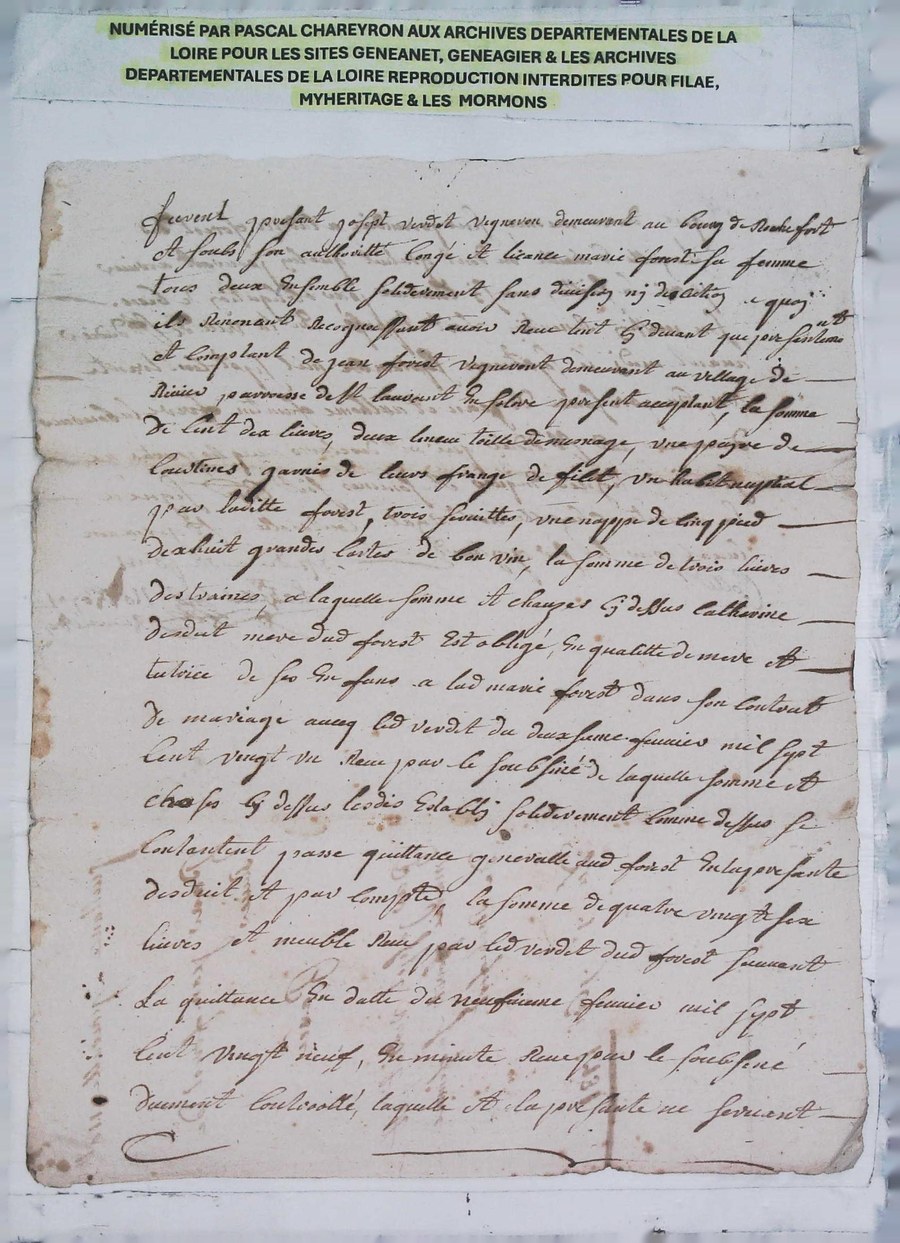 NUMÉRISÉ PAR PASCAL CHAREYRON AUX ARCHIVES DEPARTEMENTALES DE LA
LOIRE POUR LES SITES GENEANET, GENEAGIER & LES ARCHIVES
DEPARTEMENTALES DE LA LOIRE REPRODUCTION INTERDITES POUR FILAE,
MYHERITAGE & LES MORMONS
furent presant josept verdet vigneron demeurant au bourg de Rochefort
et soubs son authoritté congé et licance marie forest sa femme
tous deux ensemble soliderement sans division nj discution a quoj
ils renonant recognoissant avoir receu tent cj devant que presentement
et comptant de jean forest vigneront demeurant au village de
paroesse de st laurent en solore present acceptant, la somme
de cent dix livres, deux linceu toille de menage, une payre de
coustines garnis de leurs frange de filet, un habit nuptial
par laditte forest, trois serviettes, une nappe de cinq pied
dexhuit grandes cartes de bon vin, la somme de trois livres
destraines, a laquelle somme et chauzes cj dessus catherine
mere dud forest est obligé, en qualitté de mere et
tutrice de ses enfans a lad marie forest dans son contrat
de mariage avecq led verdet du feuvrier mil sept
cent vingt un receu par le soubsiné de laquelle somme et
choses cj dessus lesdis establj soliderement comme dessus se
contantent passe quittance generalle aud forest en la presante
desduit et par compté, la somme de quatre vingt six
livres et meuble receu par led verdet dud forest suivant
La quittance en datte du neufieme feuvrier mil sept
cent vingt neuf, en minute receu par le soubsiné
duement controollé, laquelle et la presante ne servant